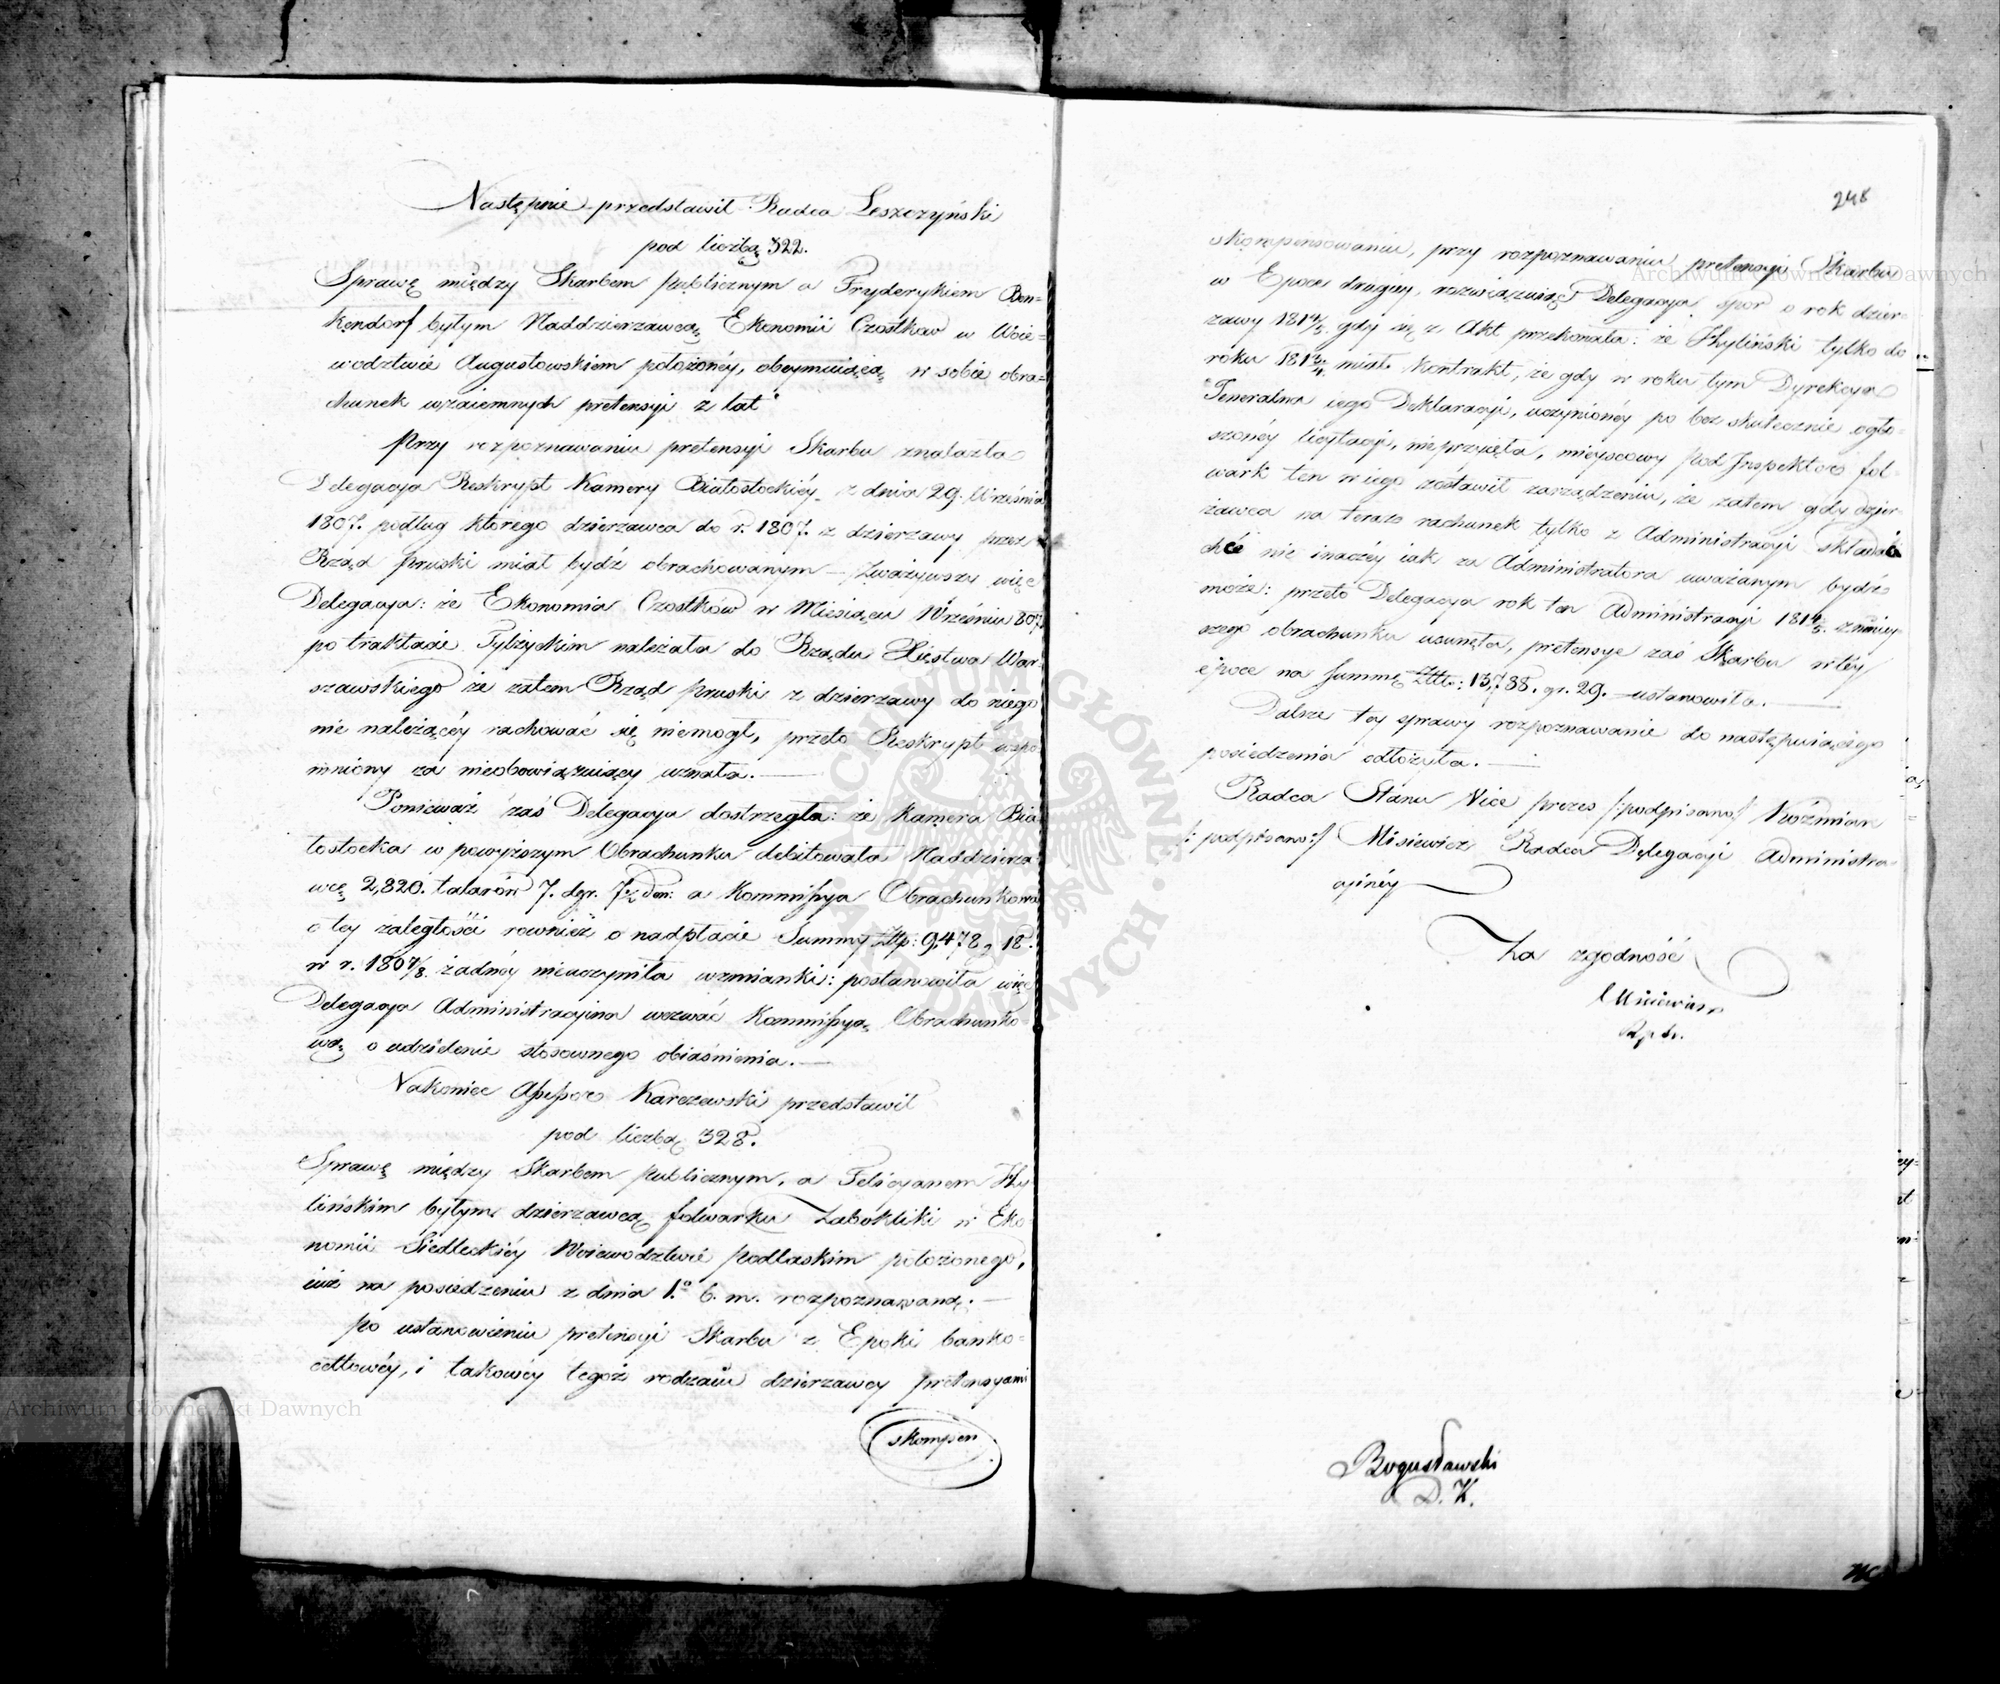 Następnie przedstawił Radca Leszczyński
pod liczbą 322.
Sprawę między Skarbem publicznym a Fryderykiem Ben=
kendorf byłym Naddzierzawcą Ekonomii Czostkow w Woie=
wodztwie Augustowskiem położonéy, obeymuiącą w sobie obra=
chunek wzaiemnych pretensyi z lat
Przy rozpoznawaniu pretensyi Skarbu znalazła
Delegacya Reskrypt Kamery Białostockiéy z dnia 29. Września
1807. podług ktorego dzierzawca do r. 1807. z dzierzawy przez
Rząd pruski miał bydź obrachowanym — Zważywszy więc
Delegacya: że Ekonomia Czostków w Miesiącu Wrześniu 807.
po traktacie Tylżyckim należała do Rządu Xięstwa War
szawskiego że zatem Rząd pruski z dzierzawy do niego
nie należącéy rachować się niemogł, przeto Reskrypt wspo
mniony za nieobowiązuiący uznała. —
Ponieważ zaś Delegacya dostrzegła: że Kamera Bia
łostocka w powyższym Obrachunku debitowała Naddzierza
wcę 2,820. talarów 7. dgr. 7½ den: a Kommissya Obrachunkowa
o tey zaległości rownież o nadpłacie Summy Złłp: 9,478 g 18.
w r. 1807/8. żadnéy nieuczyniła wzmianki: postanowiła więc
Delegacya Administracyina wezwać Kommissyą Obrachunko
wą o udzielenie stosownego obiaśnienia. —
Nakoniec Assessor Karczewski przedstawił
pod liczbą 328.
Sprawę między Skarbem publicznym, a Felicyanem Hy
lińskim byłym dzierzawcą folwarku Zabokliki w Eko
nomii Siedleckiéy Woiewodztwie podlaskim położonego,
iuż na posiedzeniu z dnia 1.º b. m. rozpoznawaną. —
po ustanowieniu pretensyi Skarbu z Epoki banko=
cetlowéy, i takowéy tegoż rodzaiu dzierzawcy pretensyami
skompen
248
skompensowaniu, przy rozpoznawaniu pretensyi Skarbu
w Epoce drugiey, rozwiązuiąc Delegacya spor o rok dzier=
zawy 1814/5. gdy się z Akt przekonała: że Hyliński tylko do
roku 1813/4. miał Kontrakt, że gdy w roku tym Dyrekcya
Generalna iego Deklaracyi, uczynionéy po bezskutecznie ogło=
szonéy licytacyi, nieprzyięła, mieyscowy pod Inspektor fol=
wark ten w iego zostawił zarządzeniu, że zatem gdy dzier
żawca na teraz rachunek tylko z Administracyi składaią
chcé nie inaczéy iak za Administratora uważanym bydź
może: przeto Delegacya rok ten Administracyi 1814/5. z niniey
szego obrachunku usunęła, pretensye zaś Skarbu w téy
epoce na summę Złłp: 13,788. gr. 29. ustanowiła. —
Dalsze tey sprawy rozpoznawanie do następuiącego
posiedzenia odłożyła. —
Radca Stanu Vice prezes /:podpisano/ Koźmian
/: podpisano:/ Misiewicz Radca Delegacyi Administra=
cyinéy
Za zgodność
Misiewicz
Bogusławski
D. K.